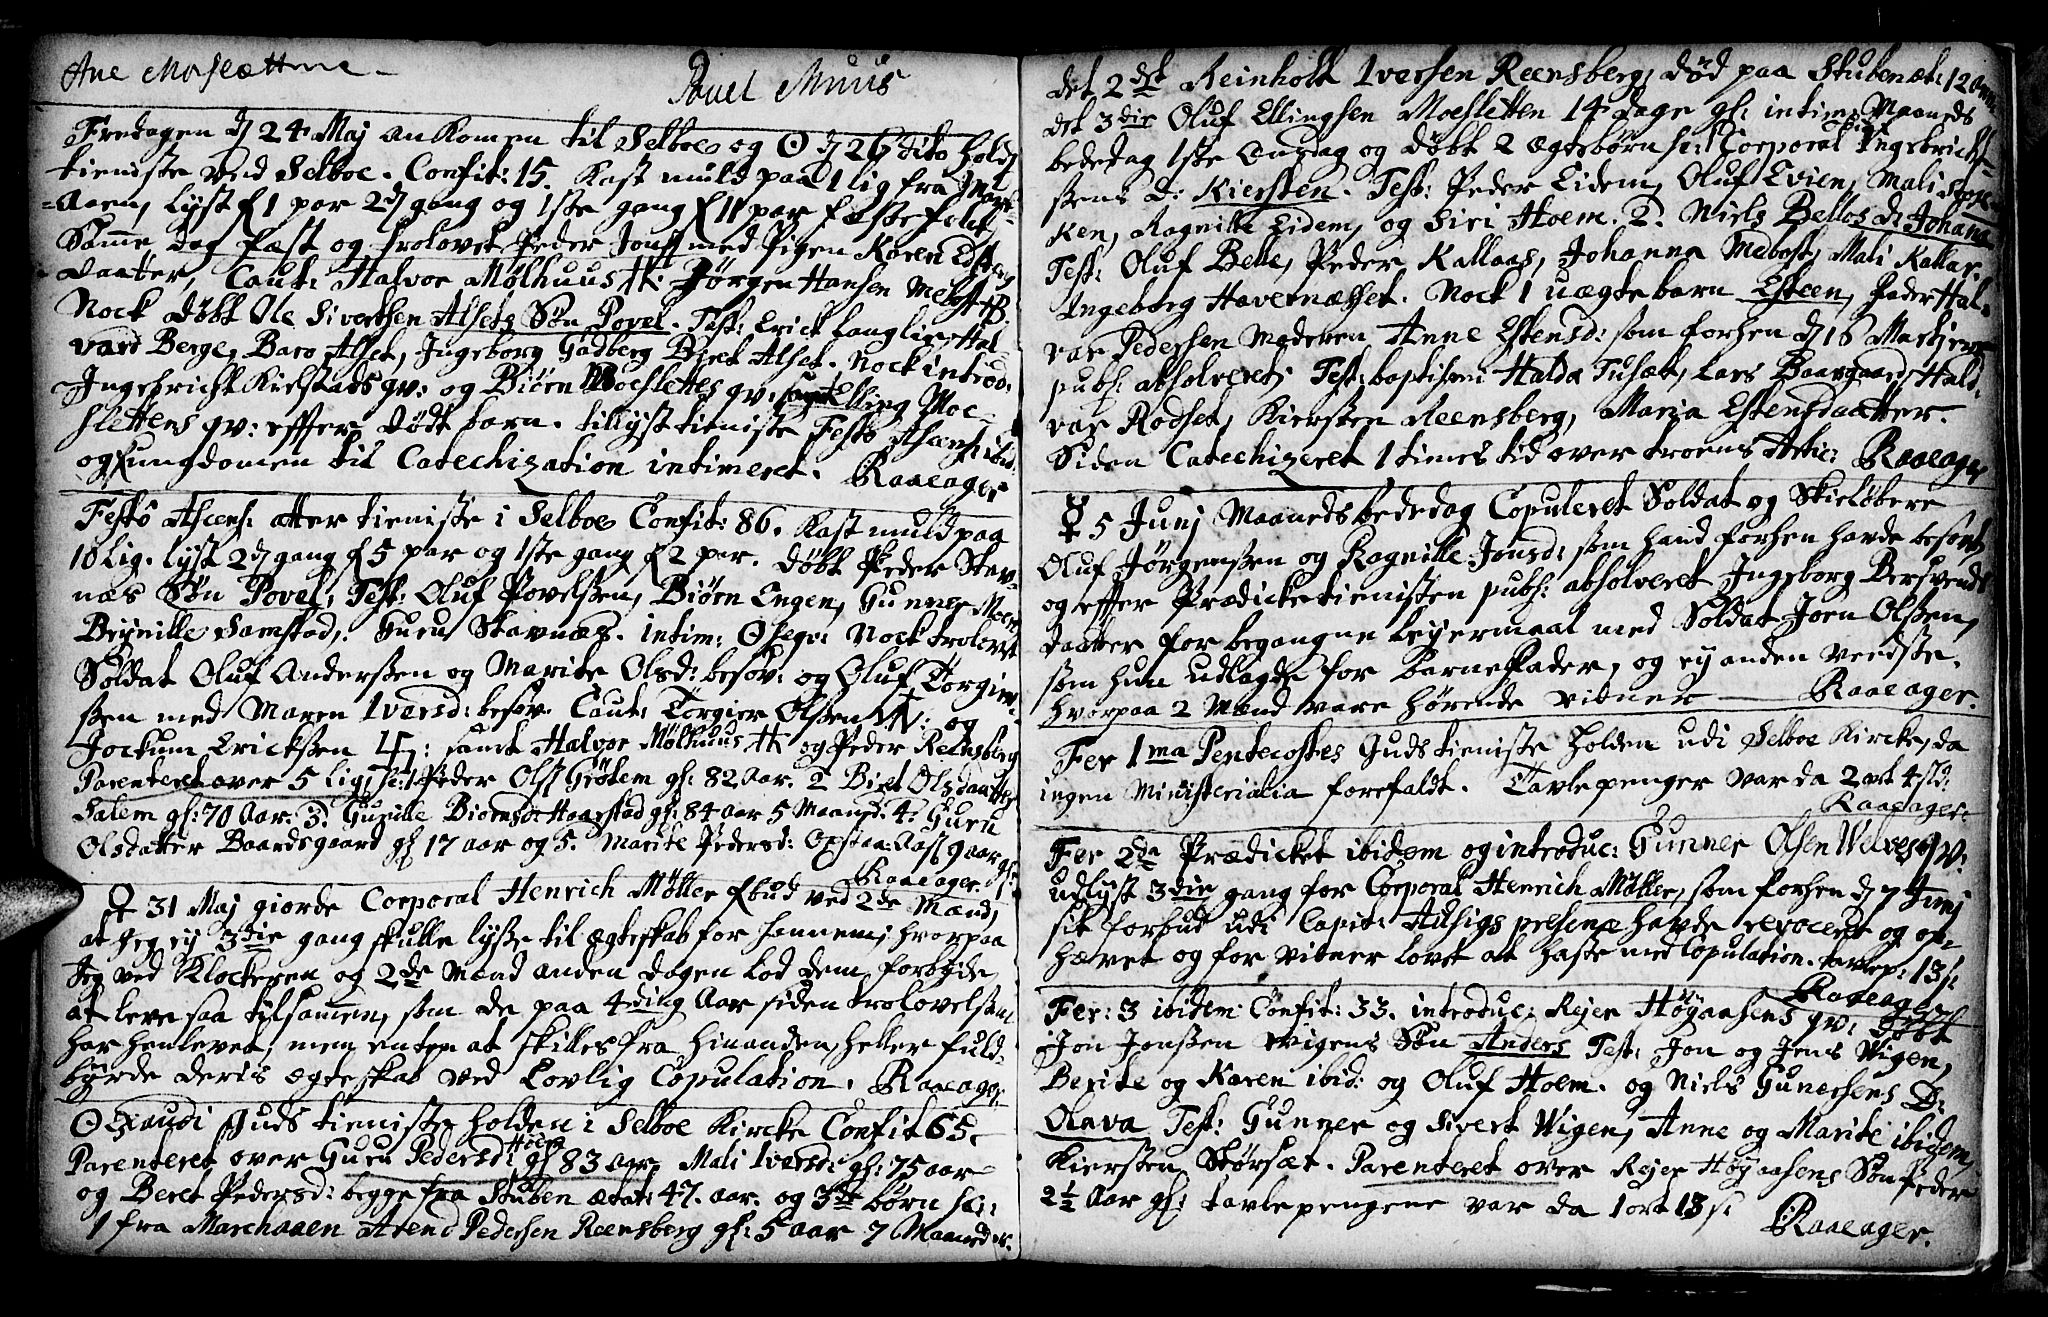 Ane Moslættne
Povel Muus
Fredagen d 24 Maj ankomen til Selboe og ☉ d 26 dito holdt
tieniste ved Selboe. Confit: 15. Kast muld paa 1 lig fra Mar-
-Aaen, lyst f 1 par 2d gang og 1ste gang f 11 par
Samme dag fæst og trolovet Peder Jonss med Pigen Karen
daatter, Caut: Halvor Mølhuus HK: Jørgen Hansen Mebost
Nock døbt Ole Sivertsen Alsets Søn Povel. Test: Erick Langlie, Hal
vard Berge, Baro Alset, Ingeborg Gadberg Beret Alset. Nock introd:
Ingebricht Kielstads qv: og Biørn Moeslettes qv: samt Elling Moe-
slettens qv: effter dødt barn. tillyst tieniste Festo Ascens: ibid:
og ungdomen til Catechization intimeret. Raaeager
Festo Ascens: atter tieniste i Selboe Confit: 86. Kast muld paa
10 Lig. lyst 2d gang f 5 par og 1ste gang f 2 par. Døbt Peder Stav-
næs Søn Povel, Test: Oluf Povelssen, Biørn Engen, Gunner Moen
Brynille Samstad, Guru Stavnæs. intim: ☉ seqv: Nock trolovet
Soldat Oluf Anderssen og Marite Olsd: besov: og Oluf Torgier-
ssen med Maren Iversd: besov. Caut: Torgier Olssen og
Jockum Erickssen samt Halvor Mølhuus HK og Peder Reensberg
Parenteret over 5 lig, sc: 1. Peder Olss Grøtem gl: 82 Aar. 2 Biret Olsdaatter
Salem gl: 70 Aar. 3. Gunille Biørnsd: Haarstad gl: 84 Aar 5 Maaned. 4. Guru
Olsdatter Baardsgaard gl 17 aar og 5. Marite Pedersd: Opstaa: Aas 9 aar gl:
Raaeager.
♀ 31 Maj giorde Corporal Henrich Møller fbud ved 2de Mænd,
at Jeg ej 3die gang skulle lysse til ægteskab for hannem; hvorpaa
Jeg ved Klockeren og 2de Mænd anden dagen lod dem forbyde
at leve saa tilsammen, som de paa 4ding Aar siden trolovelsen
har henlevet; men enten at skilles fra hinanden, heller fuld-
byrde deris ægteskab ved Lovlig Copulation. Raaeager
☉ Exaudi Guds tieniste holden i Selboe Kircke Confit 65.
Parenteret over Guru Pedersd: Hoem gl 83 Aar, Mali Iversd: gl: 75 aar
og Beret Pedersd: begge fra Stuben ætat: 47. aar. og 3de børn sc:
1 fra Marchaaen Arend Pedersen Reensberg gl: 5 aar 7 Maaneder.
det 2det Reinholt Iversen Reensberg, død paa Stuben æt: 12
det 3die Oluf Ellingsen Moesletten 14 dage gl: intim: Maaneds
bededag 1ste Onsdag og døbt 2 ægtebørn sc: 1 Corporal Ingebricht-
ssens D: Kiersten. Test: Peder Eidem, Oluf Evien, Mali
ken, Ragnille Eidem, og Siri Hoem. 2. Niels Bellos d: Johanna
Test: Oluf Belle, Peder Kallaas, Johanna Mebost, Mali Kallar.
Ingeborg Havernæsset. Nock 1 uægte barn Esten, Fader Hal-
var Pedersen Moderen Anne Estensd: som forhen d 16 Martj
publ: absolveret; Test: baptismi Halda Tuset, Lars Baargaard, Hald
var Rødset, Kiersten Reensberg, Maria Estensdaatter.
Siden Catechizeret 1 times tid over troens Artic: Raaeager
☿ 5 Junj Maaneds bededag Copuleret Soldat og Skieløbere
Oluf Jørgenssen og Ragnille Jonsd: som hand forhen havde besovet
og effter Prædicketienisten publ: absolveret Ingeborg Bersvends
daatter for begangne Leyermaal med Soldat Joen Olssen,
som hun udlagde for Barnefader, og ej anden veedste.
hvorpaa 2 Mænd vare hørende vidner — Raaeager.
Fer 1ma Pentecostes Guds tieniste holden udi Selboe Kircke, da
ingen Ministerialia forefaldt. Tavlepenger var da 2 ort 4 sk:
Raaeager
Fer 2da Prædicket ibidem og introduc: Gunner Olsen Welves qv:
udlyst 3die gang for Corporal Henrich Møller, som forhen d 7 Junj
sit forbud udi Capit: Adsigs presence havde revoceret og op-
hævet og for vidner lovet at haste med Copulation. tavlep: 13 s:
Raaeager
Fer: 3 ibidem Confit: 33. introduc: Rejer Høyaasens qv: Døbt
Jon Jonssen Wigens Søn Anders Test: Jon og Jens Wigen,
Berite og Karen ibid: og Oluf Hoem. og Niels Gunersens D:
Olava Test: Gunner og Sivert Wigen, Anne og Marite ibidem,
Kiersten Størsæt. Parenteret over Rejer Høyaasens Søn Peder
2½ Aar gl: tavlepengene var da 1 ort 13 s:
Raaeager.